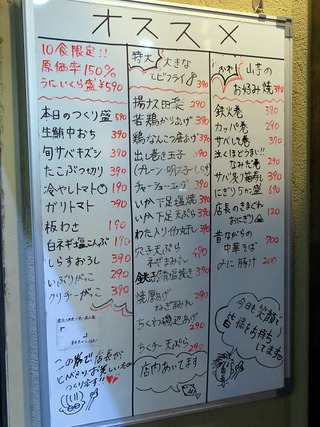 オススメ
10食限定!!
原価率150%
うにいくら盛 ¥590
本日のつくり盛 590
生鯖中おち 390
旬サバキズシ 390
たこぶつ切り 390
冷やしトマト 190
ガリトマト 190
板わさ 190
白ネギ塩こんぶ 190
しらすおろし 390
いぶりがっこ 290
クリチーがっこ 390
この奥で店長が
つくります!!
特大 大きな
エビフライ 390
揚ナス田楽 290
若鶏からあげ 390
鶏なんこつ唐あげ 390
出し巻き玉子 390
(プレーン・明太子・しらす)
チャーシューエッグ 390
いか下足塩焼 390
いか下足天ぷら 390
わた入りイカ丸干し 390
穴子天ぷら
ねぎまみれ 390
塩焼き 390
ねぎまみれ
ちくわ磯辺あげ 290
ちくチー天ぷら 290
店内あいてます
山芋の
お好み焼 390
鉄火巻 390
カッパ巻 290
サバしそ巻 390
泣くほどうまい!!
なみだ巻 290
サバ炙り棒寿し 390
にぎり5カン盛 690
店長のきまぐれ
おにぎり 120
昔ながらの
中華そば 700
ミニ豚汁 200
今日も笑顔で
皆様をお待ち
してます